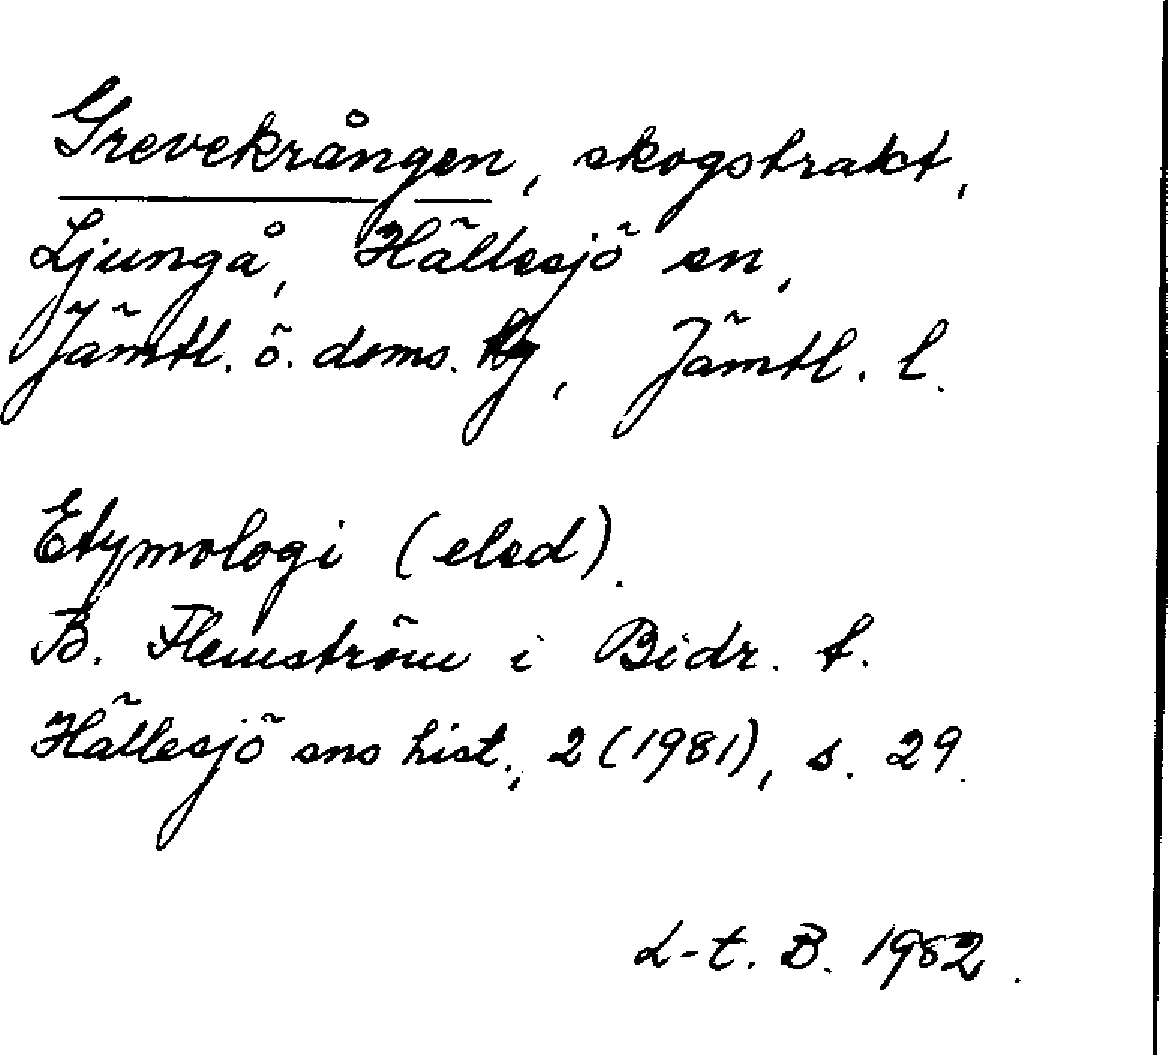 Grevekrången, skogstrakt,
Ljungå, Hällesjö sn,
Jämtl. ö. doms. hg, Jämtl. l.
Etymologi (elsd).
B. Flemström i Bidr. t.
Hällesjö sns hist., 2 (1981), s. 29.
L-t. B. 1982.